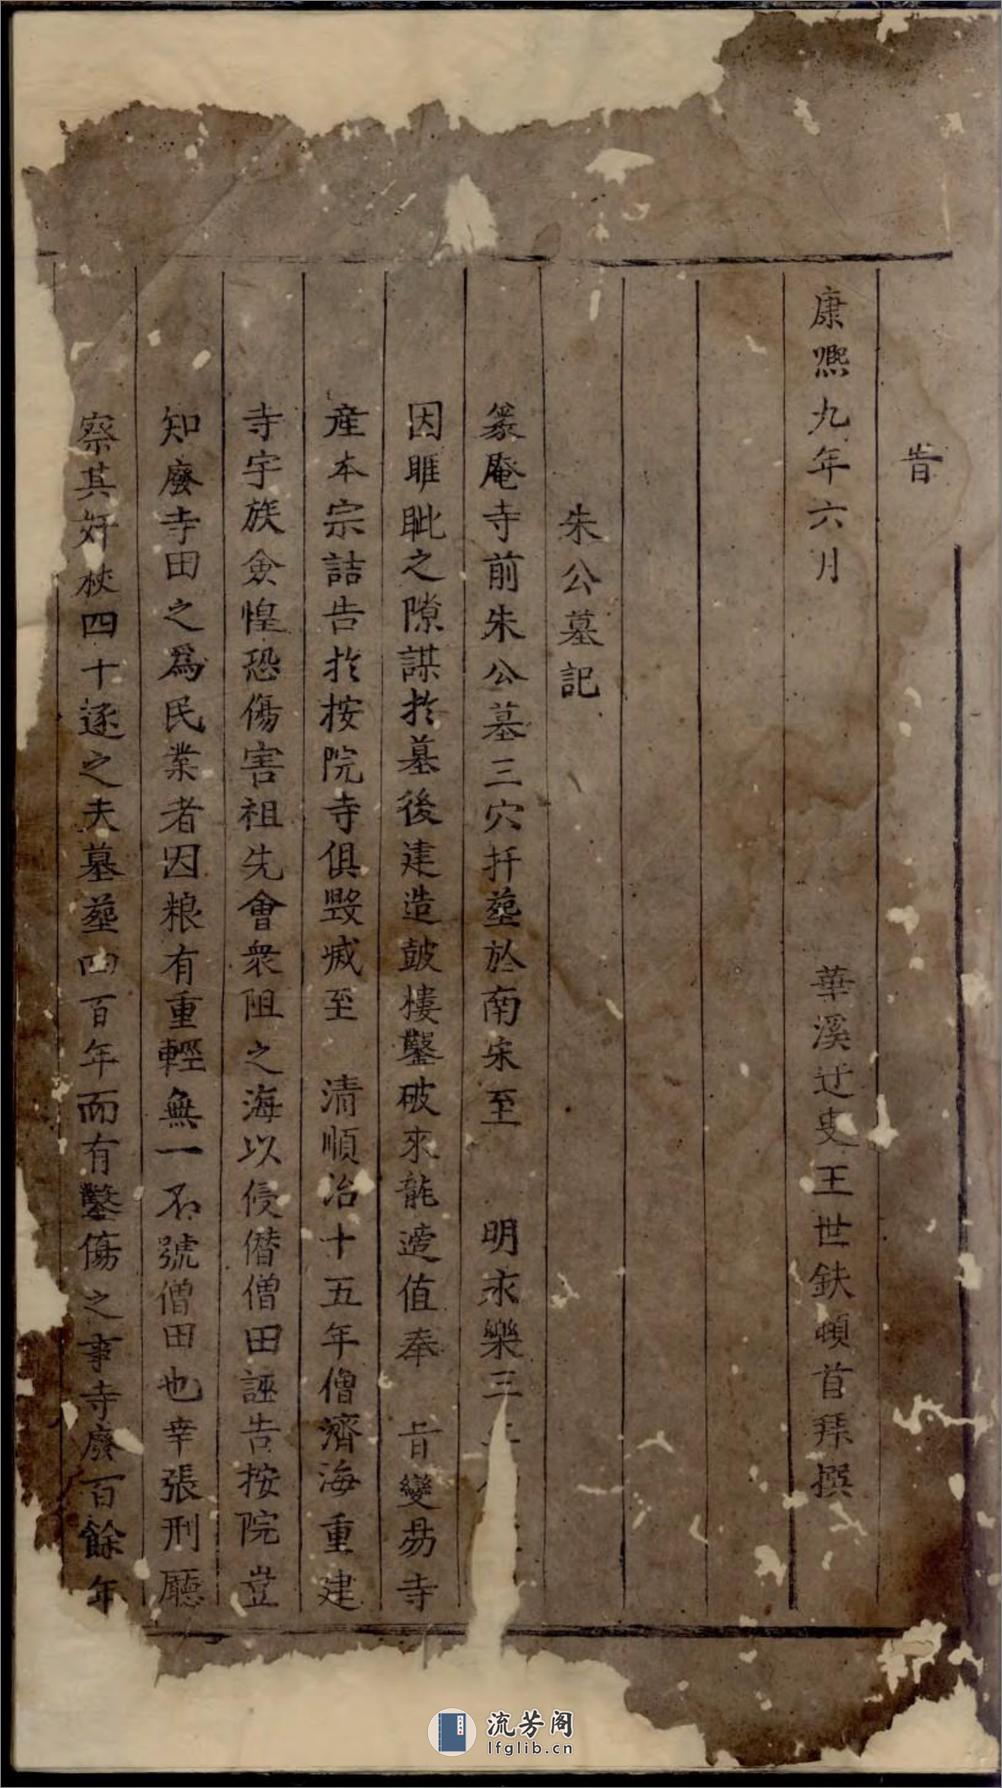 旹
康熈九年六月 華溪迂叟王世鈇頓首拜撰
朱公墓記
篆庵寺前朱公墓三穴扦塟於南宋至 明永樂三
因睢眦之隙謀扵墓後建造鼓樓鑿破來龍適值奉 旨變易寺
産本宗詰告扵按院寺俱毀烕至 清順治十五年僧濟海重建
寺宇族僉惶恐傷害祖先會衆阻之海以侵僣僧田誣告按院豈
知廢寺田之爲民業者因粮有重輕無一不號僧田也幸張刑廳
察其奸杖四十逐之夫墓塟四百年而有鑿傷之事寺廢百餘年
流芳阁
lfglib.cn